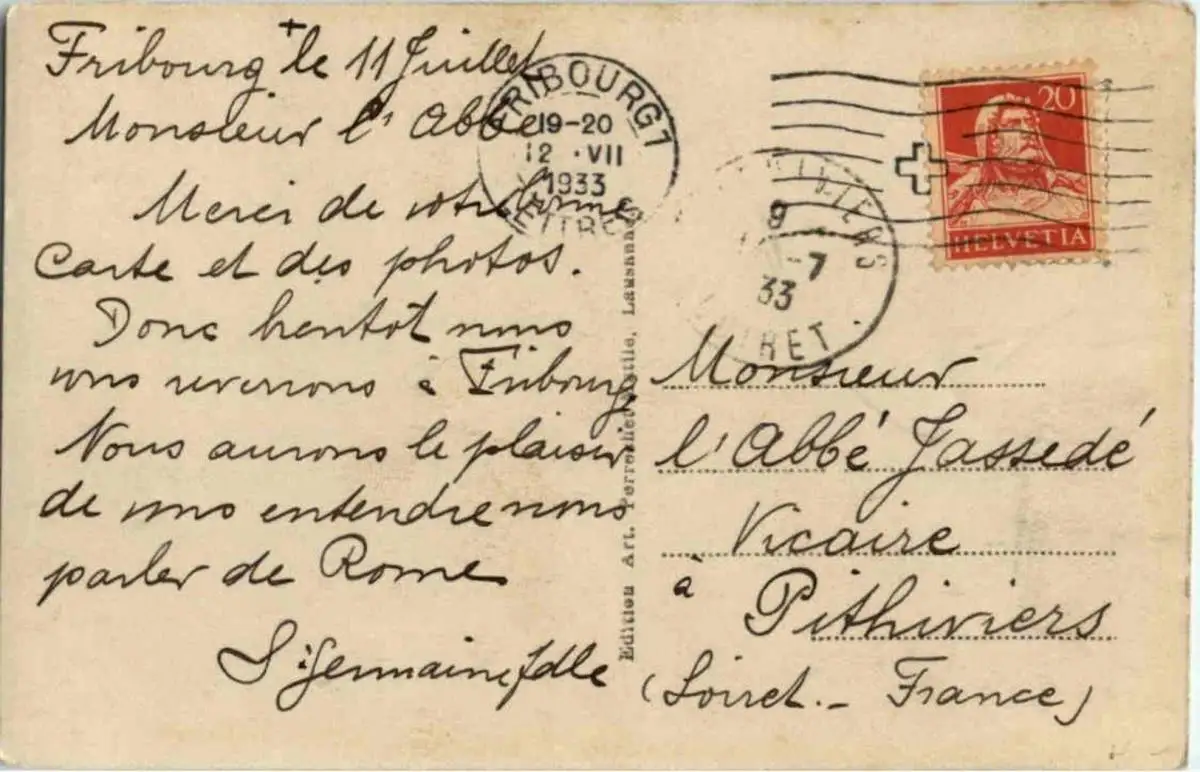 Fribourg le 11 Juillet
Monsieur l'Abbé
Merci de votre bonne
Carte et des photos.
Donc bientôt nous
vous reverrons à Fribourg
Nous aurons le plaisir
de vous entendre nous
parler de Rome
Sr Germaine
FRIBOURG 1
19-20
12 · VII
1933
LETTRES
Edition Art. Perrochet Lausanne
20
HELVETIA
PITHIVIERS
9
-7
33
LOIRET
Monsieur
l'Abbé Jassedé
Vicaire
à Pithiviers
(Loiret.- France)